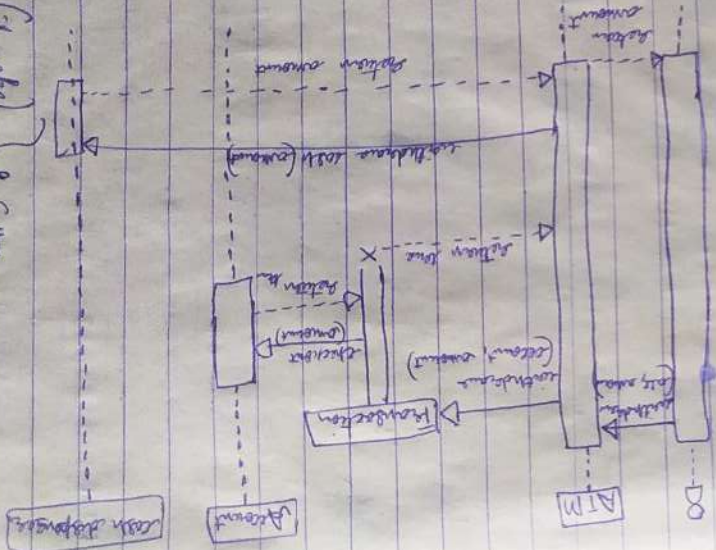 ATM
Account
Cash dispenser
Transaction
withdraw
(account, amount)
checkout
(amount)
Return
Return true
withdraw cash (amount)
Return amount
Return
amount